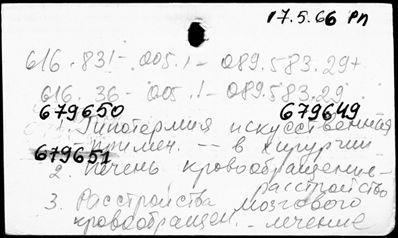 17.5.66 РП
616.831-.005.1-089.583.29+
616.36-005.1-089.583.29
679650 679649
1. Гипотермия искусственная
примен. -- в хирургии
679651
2. Печень кровообращение-
расстройство
3. Расстройства мозгового
кровообращен. - лечение